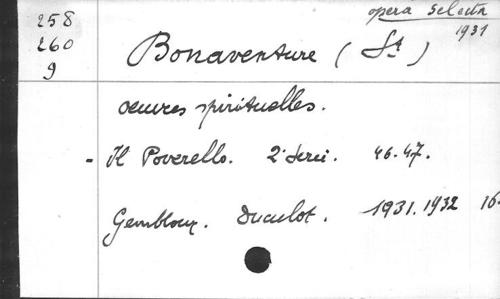 opera selecta
1931
258
260
9
Bonaventure (St)
oeuvres spirituelles.
- Il Poverello. 2e Serie. 46.47.
Gembloux. Duculot. 1931.1932 16.